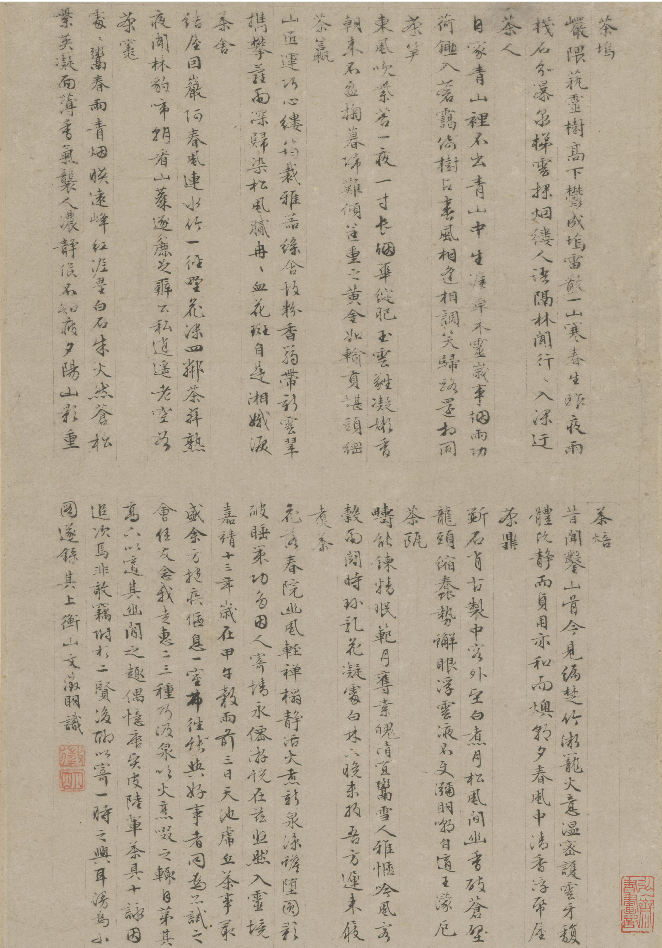 茶塢
巖隈藝靈樹高下鬱成塢雷散一山寒春生昨夜雨
棧石分瀑泉梯雲探烟縷人語隔林聞行〻入深迂
茶人
自家青山裡不出青山中生涯草木靈歲事烟雨功
荷鋤入蒼靄倚樹占春風相逢相調笑歸路還相同
茶笋
東風吹紫苔一夜一寸長烟華綻肥玉雲蕤凝嫩香
朝來不盈掬暮歸難傾筐重之黃金如輸貢堪頭綱
茶籯
山匠運巧心縷筠裁雅器絲含故粉香蒻帶新雲翠
攜攀蘿雨深歸染松風膩冉〻血花斑自是湘娥淚
茶舍
結屋因巖阿春風連水竹一徑野花深四鄰茶荈熟
夜聞林豹啼朝看山麋逐麤足辦公私逍遙老空谷
茶竈
處〻鬻春雨青烟映遠峰紅泥壘白石朱火然蒼松
紫英凝面薄香氣襲人濃靜候不知疲夕陽山影重
茶焙
昔聞鑿山骨今見編楚竹微籠火意溫密護雲牙馥
體既靜而貞用亦和而燠朝夕春風中清香浮帋屋
茶鼎
斲石肖古製中容外堅白煮月松風間幽香破蒼壁
龍頭縮蠢勢蠏眼浮雲液不使彌明嘲自適王濛厄
茶甌
疇能鍊精珉範月奪素魄清宜鬻雪人雅愜吟風客
穀雨鬭時珍乳花凝處白林下晚未收吾方遲來屐
煮茶
花落春院幽風輕禪榻靜活火煮新泉涼蟾墮圓影
破睡策功多因人寄情永僊游恍在茲悠然入靈境
嘉靖十三年歲在甲午穀雨前三日天池虎丘茶事最
盛余方抱疾偃息一室弗能往與好事者同為品試之
會佳友念我走惠二三種乃汲泉以火烹啜之輒自第其
高下以適其幽閒之趣偶憶唐賢皮陸輩茶具十詠因
追次焉非敢竊附於二賢後聊以寄一時之興耳漫為小
圖遂錄其上衡山文徵明識